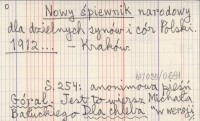 Nowy śpiewnik narodowy
dla dzielnych synów i cór Polski.
1912... – Kraków.
S. 254: anonimowa pieśń
Góral. Jest to wiersz Michała
Bałuckiego Dla chleba w wersji